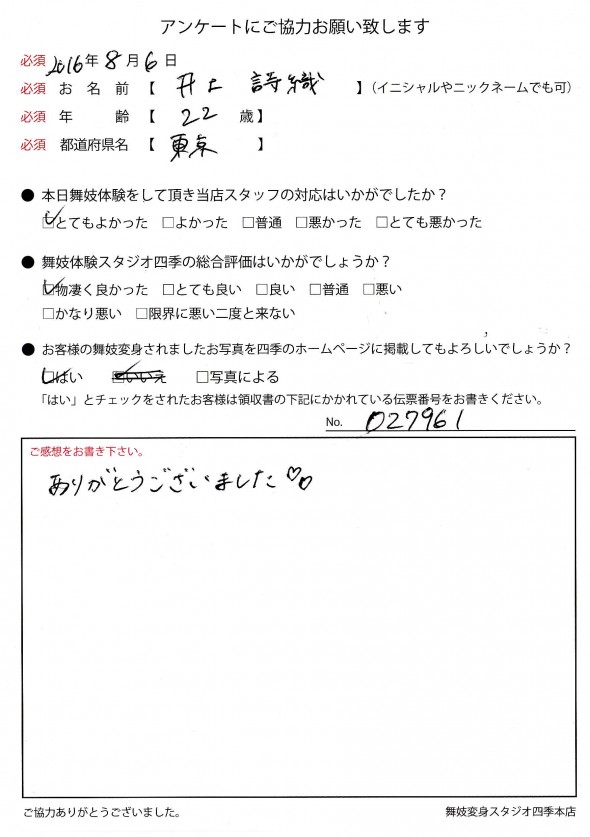 アンケートにご協力お願い致します
必須 2016年 8月 6日
必須 お名前【 井上 詩織 】（イニシャルやニックネームでも可）
必須 年齢【 22 歳】
必須 都道府県名【 東京 】
● 本日舞妓体験をして頂き当店スタッフの対応はいかがでしたか？
☑とてもよかった □よかった □普通 □悪かった □とても悪かった
● 舞妓体験スタジオ四季の総合評価はいかがでしょうか？
☑物凄く良かった □とても良い □良い □普通 □悪い
□かなり悪い □限界に悪い二度と来ない
● お客様の舞妓変身されましたお写真を四季のホームページに掲載してもよろしいでしょうか？
☑はい ☑いいえ □写真による
「はい」とチェックをされたお客様は領収書の下記にかかれている伝票番号をお書きください。
No. 027961
ご感想をお書き下さい。
ありがとうございました♡♡
ご協力ありがとうございました。
舞妓変身スタジオ四季本店